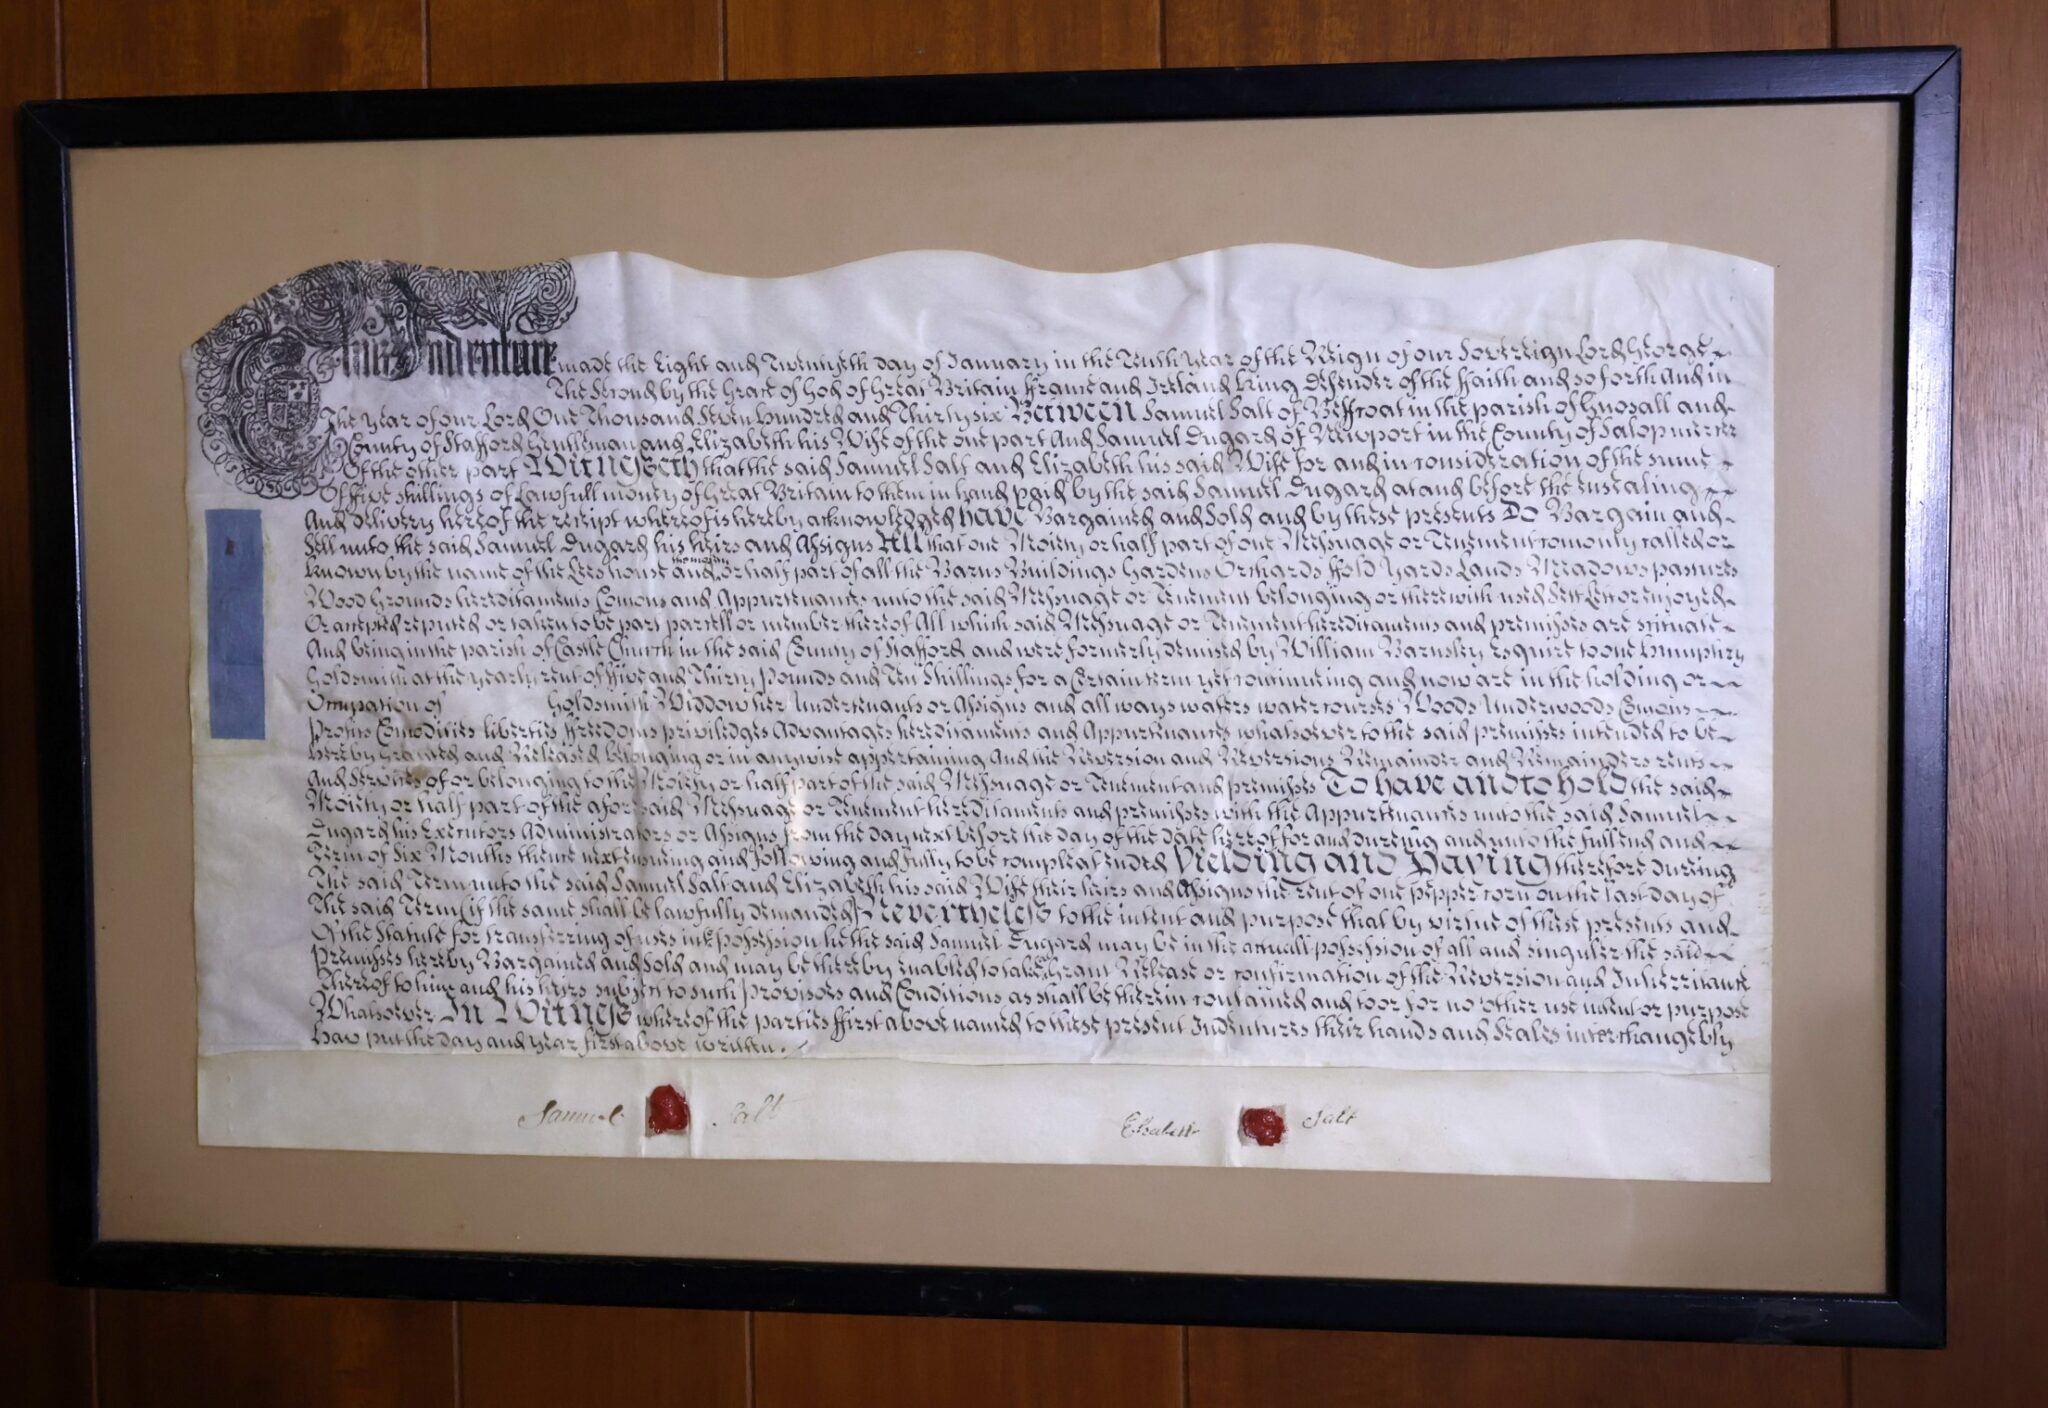 This Indenture made the Eight and Twentyeth day of January in the Tenth Year of the Reign of our Sovereign Lord George
The Second by the Grace of God of Great Britain ffrance and Ireland King Defender of the ffaith and so forth And in
The Year of our Lord One Thousand Seven Hundred and Thirty six Between Samuel Salt of Beffcoat in the parish of Gnosall and
County of Stafford Gentleman and Elizabeth his Wife of the one part And Samuel Dugard of Newport in the County of Salop mercer
Of the other part Witnesseth that the said Samuel Salt and Elizabeth his said Wife for and in consideration of the sume
Of ffive shillings of Lawfull money of Great Britain to them in hand paid by the said Samuel Dugard at and before the ensealing
And delivery hereof the receipt whereof is hereby acknowledged have Bargained and Sold and by these presents Do Bargain and
Sell unto the said Samuel Dugard his heirs and Assigns All that one Moiety or half part of one Messuage or Tenement comonly called or
Known by the name of the Lees house and the moiety or half part of all the Barns Buildings Gardens Orchards ffold Yards Lands Meadows pastures
Wood Grounds hereditaments Comons and Appurtenances unto the said Messuage or Tenement belonging or therewith used Sett Lett or enjoyed
Or accepted reputed or taken to be part parcell or member thereof All which said Messuage or Tenement hereditaments and premisses are scituate
And being in the parish of Castle Church in the said County of Stafford and were formerly demised by William Barnsley Esquire to one Humphry
Goldsmith at the yearly rent of ffive and Thirty Pounds and Ten Shillings for a Certain term yet continueing and now are in the holding or
Occupation of Goldsmith Widdow her Undertenants or Assigns and all ways waters water courses Woods Underwoods Comons
Profits Comodities liberties ffreedoms priviledges Advantages hereditaments and Appurtenances whatsoever to the said premisses intended to be
hereby Granted and Released belonging or in anywise appertaining And the Reversion and Reversions Remainder and Remainders rents
And Services of or belonging to the Moiety or half part of the said Messuage or Tenement and premisses To have and to hold the said
Moiety or half part of the aforesaid Messuage or Tenement hereditaments and premisses with the Appurtenances unto the said Samuel
Dugard his Executors Administrators or Assigns from the day next before the day of the date hereof for and dureing and unto the full end and
Term of Six Months thence next ensueing and following and fully to be compleat ended Yielding and Paying therefore dureing
The said Term unto the said Samuel Salt and Elizabeth his said Wife their heirs and Assigns the rent of one pepper corn on the last day of
The said Term (if the same shall be lawfully demanded) Nevertheless to the intent and purpose that by virtue of these presents and
Of the Statute for transferring of uses into possession he the said Samuel Dugard may be in the actuall possession of all and singuler the said
Premisses hereby Bargained and Sold and may be thereby enabled to take Grant Release or confirmation of the Reversion and Inherritance
Thereof to him and his heirs subject to such Provisoes and Conditions as shall be therein contained and to or for no other use intent or purpose
Whatsoever In Witness whereof the parties ffirst above named to these present Indentures their hands and Seales interchangebly
hav put the day and year first above written.
Samuel Salt Elizabeth Salt